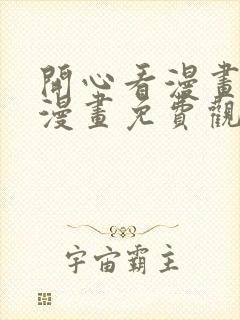 開心看漫畫
漫畫免費觀
宇宙霸主